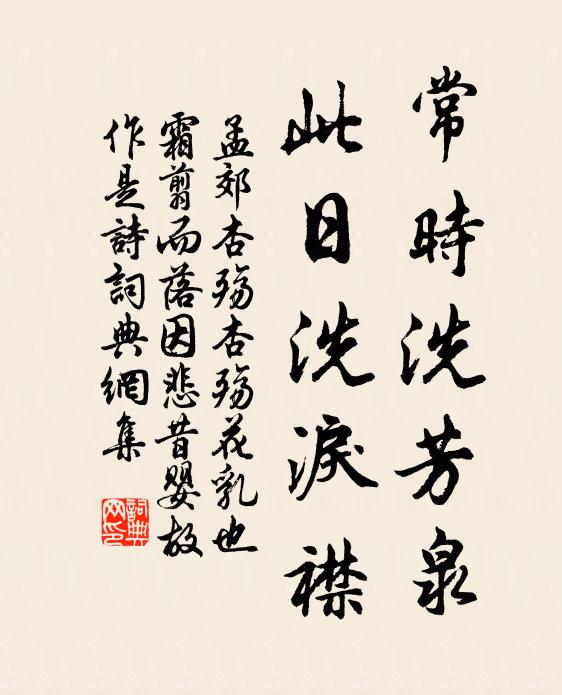 常時洗芳泉
此日洗淚襟
孟郊杏殤杏殤花乳也
霜翦而落因悲昔嬰故
作是詩詞典網集
詞典
网印